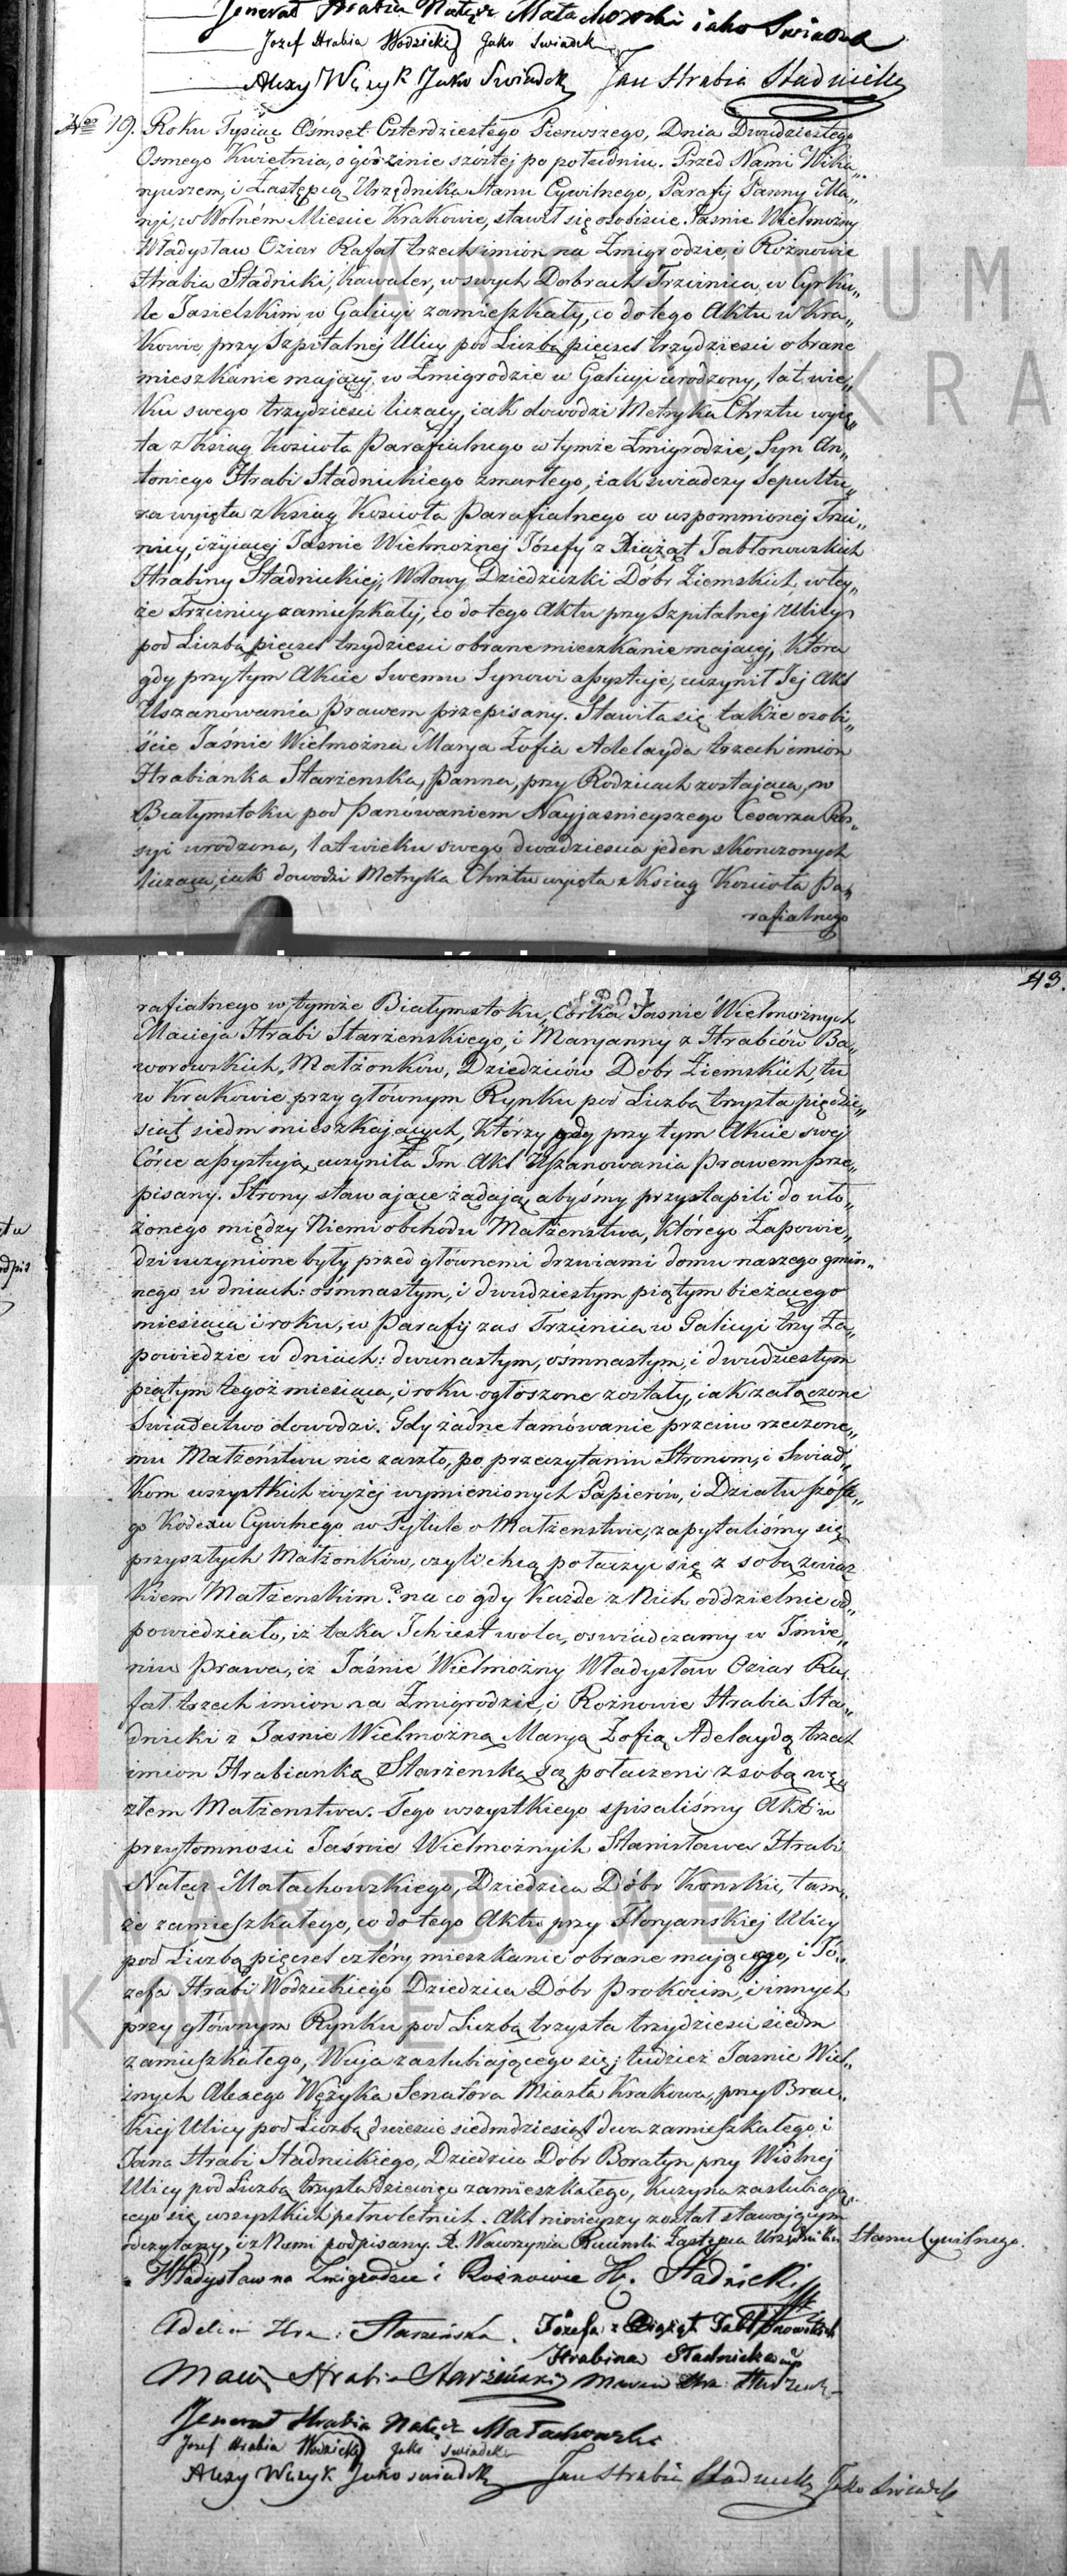 Jenerał Hrabia Nałęcz Małachowski iako Swiadek
Jozef Hrabia Wodzicki Jako Swiadek
Alexy Wężyk Jako Swiadek Jan Hrabia Stadnicki
Nro 19. Roku Tysiąc Ośmset Czterdziestego Pierwszego, Dnia Dwudziestego
Osmego Kwietnia, o godzinie szóstej po południu. Przed Nami Wika„
ryuszem, i Zastępcą Urzędnika Stanu Cywilnego, Parafij Panny Ma„
ryi, w Wolném Miescie Krakowie, stawił się osobiscie Jasnie Wielmożny
Władysław Oziar Rafał trzech imion na Zmigrodzie, i Rożnowie
Hrabia Stadnicki, Kawaler, w swych Dobrach Trzcinica, w Cyrku„
le Jasielskim w Galicyi zamieszkały, co do tego Aktu w Kra„
kowie przy Szpitalnej Ulicy pod Liczbą pięćset trzydziesci obrane
mieszkanie mający, w Zmigrodzie w Galicyi urodzony, lat wie„
ku swego trzydziesci liczący, iak dowodzi Metryka Chrztu wyię„
ta z Ksiąg Kosciola Parafialnego w tymże Zmigrodzie, Syn An„
toniego Hrabi Stadnickiego zmarłego, iak swiadczy Sepultu„
ra wyięta z Ksiąg Kosciola Parafialnego w wspomnionej Trzci„
nicy, i żyiącej Jasnie Wielmożnej Józefy z Xiążąt Jabłonowskich
Hrabiny Stadnickiej, Wdowy Dziedziczki Dóbr Ziemskich, w tey„
że Trzcinicy zamieszkałej, co do tego Aktu przy Szpitalnej Ulicy
pod Liczbą pięćset trzydziesci obrane mieszkanie mającej, Która
gdy przy tym Akcie Swemu Synowi assystuje, uczynił Jej Akt
Uszanowania Prawem przepisany. Stawiła się także osobi„
ście Jaśnie Wielmożna Marya Zofia Adelayda trzech imion
Hrabianka Starzenska, Panna, przy Rodzicach zostająca, w
Białymstoku pod Panowaniem Nayjasnieyszego Cesarza Ros„
syi urodzona, lat wieku swego dwadziescia jeden skonczonych
licząca, iak dowodzi Metryka Chrztu wyięta z Ksiąg Kosciola Pa„
rafialnego
43.
rafialnego w tymże Białymstoku, Córka Jasnie Wielmożnych
Macieja Hrabi Starzenskiego, i Maryanny z Hrabiów Ba„
worowskich, Małżonków, Dziedziców Dóbr Ziemskich, tu
w Krakowie przy głównym Rynku pod Liczbą trzysta pięćdzie„
siąt siedm mieszkających, Którzy gdy przy tym Akcie swej
Córce assystują, uczyniła Im Akt Uszanowania Prawem prze„
pisany. Strony stawające żądają, abyśmy przystąpili do uło„
żonego między Niemi obchodu Małżeństwa, Którego Zapowie„
dzi uczynione były przed głównemi drzwiami domu naszego gmin„
nego w dniach: ośmnastym, i dwudziestym piątym bieżącego
miesiąca i roku, w Parafij zas Trzcinica w Galicyi trzy Za„
powiedzie w dniach: dwunastym, ośmnastym, i dwudziestym
piątym tegoż miesiąca, i roku ogłoszone zostały, iak załączone
Swiadectwo dowodzi. Gdy żadne tamówanie przeciw rzeczone„
mu Małżeństwu nie zaszło, po przeczytaniu Stronom, i Swiad„
kom wszystkich wyżéj wymienionych Papierów, i Działu szóste„
go Kodexu Cywilnego w Tytule o Małżenstwie, zapytaliśmy się
przyszłych Małżonków, czyli chcą połączyć się z sobą związ„
kiem Małżenskim? na co gdy Każde z Nich oddzielnie od„
powiedziało, iż taka Ich iest wola, oswiadczamy w Imie„
niu Prawa, iż Jaśnie Wielmożny Władysław Oziar Ra„
fał trzech imion na Zmigrodzie, i Rożnowie Hrabia Sta„
dnicki z Jasnie Wielmożną Maryą Zofią Adelaydą trzech
imion Hrabianką Starzenską są połączeni z sobą wę„
złem Małżenstwa. Tego wszystkiego spisaliśmy Akt w
przytomnosci Jaśnie Wielmożnych Stanisława Hrabi
Nałęcz Małachowskiego, Dziedzica Dóbr Konskie, tam„
że zamieszkałego, co do tego Aktu przy Floryanskiej Ulicy
pod Liczbą pięćset cztéry mieszkanie obrane mającego, i Jó„
zefa Hrabi Wodzickiego Dziedzica Dóbr Prokocim, i innych
przy głównym Rynku pod Liczbą trzysta trzydziesci siedm
zamieszkałego, Wuja zaslubiającego się; tudzież Jasnie Wiel„
żnych Alexego Wężyka Senatora Miasta Krakowa, przy Brac„
kiej Ulicy pod Liczbą dwiescie siedmdziesiąt dwa zamieszkałego i
Jana Hrabi Stadnickiego, Dziedzica Dóbr Boratyn przy Wislnej
Ulicy pod Liczbą trzysta dziewięć zamieszkałego, Kuzyna zaslubiają„
cego się, wszystkich pełnoletnich. Akt niniejszy został stawającym
odczytany, i z Nami podpisany. X. Wawrzyniec Zastępca Urzędnika Stanu Cywilnego.
Władysław na Zmigrodzie i Rożnowie H. Stadnicki
Adelia Hra: Starzeńska. Józefa z Xiążąt Jabłonowskich
Hrabina Stadnicka mp
Maciej Hrabia Starzeński
Jenerał Hrabia Nałęcz Małachowski
Jozef Hrabia Wodzicki Jako Swiadek
Alexy Wężyk Jako swiadek Jan Hrabia Stadnicki Jako Swiadek
ARCHIWUM
W KRA
NARODOWE
AKOWIE